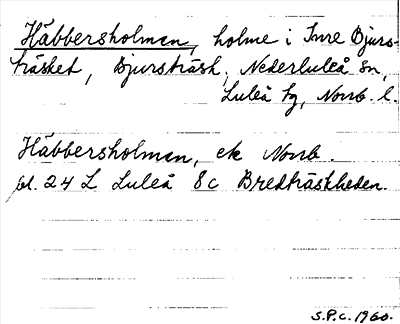 Häbbersholmen, holme i Inre Bjurs-
träsket, Bjursträsk, Nederluleå sn,
Luleå tg, Norrb. l.
Häbbersholmen, ek Norrb.
bl. 24 L Luleå 8c Bredträskheden.
S.P.C. 1960.